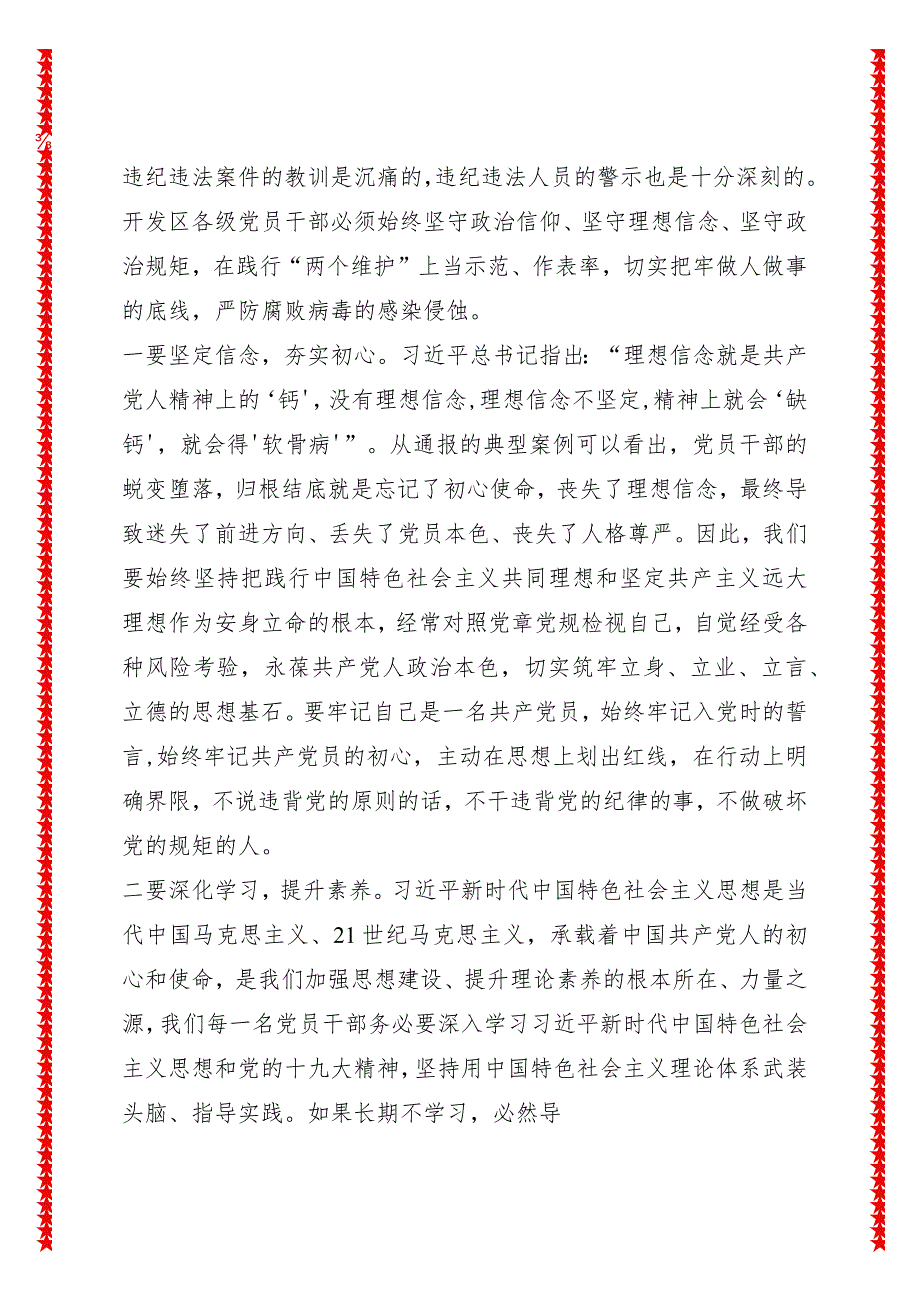 3/8
违纪违法案件的教训是沉痛的,违纪违法人员的警示也是十分深刻的。
开发区各级党员干部必须始终坚守政治信仰、坚守理想信念、坚守政
治规矩，在践行“两个维护”上当示范、作表率，切实把牢做人做事
的底线，严防腐败病毒的感染侵蚀。
一要坚定信念，夯实初心。习近平总书记指出：“理想信念就是共产
党人精神上的‘钙',没有理想信念,理想信念不坚定,精神上就会‘缺
钙'，就会得'软骨病'”。从通报的典型案例可以看出，党员干部的
蜕变堕落，归根结底就是忘记了初心使命，丧失了理想信念，最终导
致迷失了前进方向、丢失了党员本色、丧失了人格尊严。因此，我们
要始终坚持把践行中国特色社会主义共同理想和坚定共产主义远大
理想作为安身立命的根本，经常对照党章党规检视自己，自觉经受各
种风险考验，永葆共产党人政治本色，切实筑牢立身、立业、立言、
立德的思想基石。要牢记自己是一名共产党员，始终牢记入党时的誓
言,始终牢记共产党员的初心，主动在思想上划出红线，在行动上明
确界限，不说违背党的原则的话，不干违背党的纪律的事，不做破坏
党的规矩的人。
二要深化学习，提升素养。习近平新时代中国特色社会主义思想是当
代中国马克思主义、21世纪马克思主义，承载着中国共产党人的初
心和使命，是我们加强思想建设、提升理论素养的根本所在、力量之
源,我们每一名党员干部务必要深入学习习近平新时代中国特色社会
主义思想和党的十九大精神,坚持用中国特色社会主义理论体系武装
头脑、指导实践。如果长期不学习，必然导